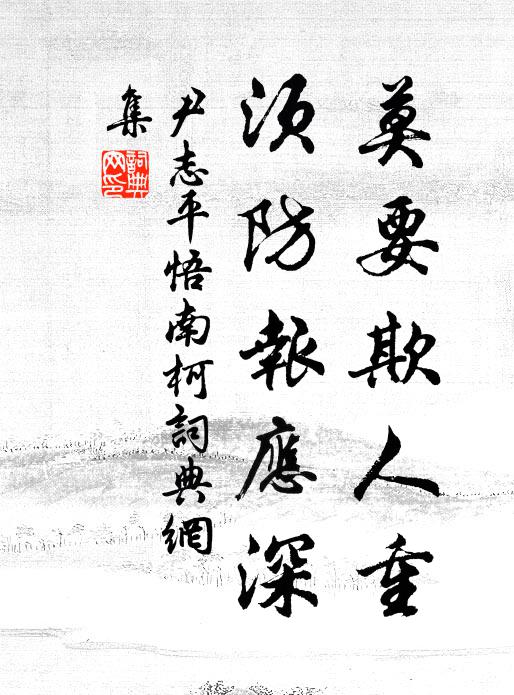 莫要欺人重
須防報應深
尹志平悟南柯詞典網
集
詞典
网印